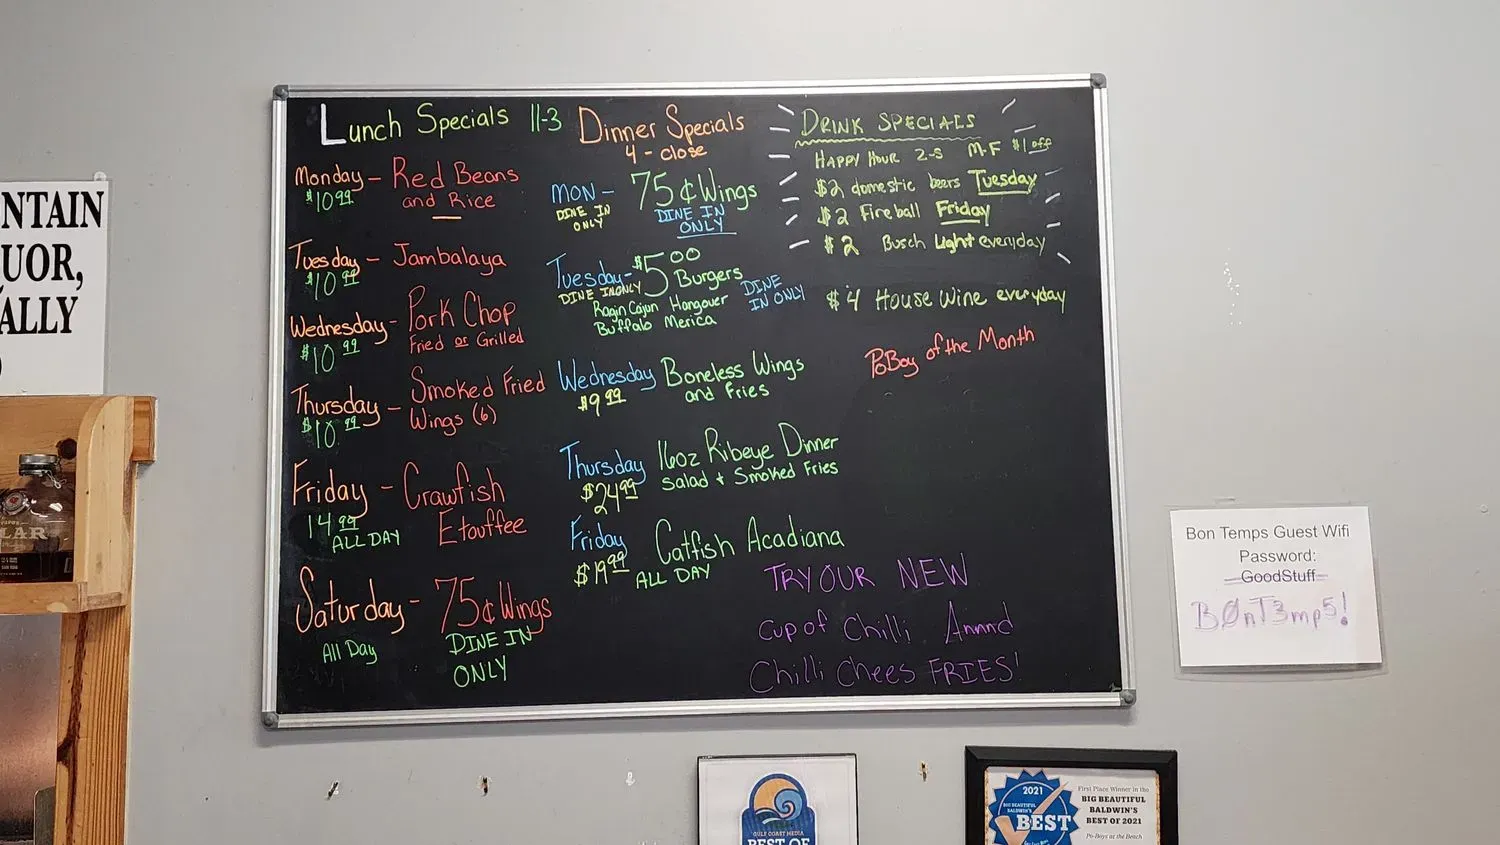 NTAIN
UOR,
ALLY
Lunch Specials 11-3
Monday - Red Beans
$10.99 and Rice
Tuesday - Jambalaya
$10.99
Wednesday - Pork Chop
$10.99 Fried or Grilled
Thursday - Smoked Fried
$10.99 Wings (6)
Friday - Crawfish
14.99 Etouffee
ALL DAY
Saturday - 75¢ Wings
All Day DINE IN
ONLY
Dinner Specials
4 - close
MON - 75¢ Wings
DINE IN
ONLY
DINE IN
ONLY
Tuesday - $5.00
Burgers
DINE IN ONLY
DINE
IN ONLY
Ragin Cajun Hangover
Buffalo Merica
Wednesday Boneless Wings
$9.99 and Fries
Thursday 16oz Ribeye Dinner
$24.99 Salad + Smoked Fries
Friday Catfish Acadiana
$19.99 ALL DAY
DRINK SPECIALS
HAPPY HOUR 2-5 M-F $1 off
$2 domestic beers Tuesday
$2 Fireball Friday
$2 Busch Light everyday
$4 House Wine everyday
PoBoy of the Month
TRY OUR NEW
Cup of Chilli Annnd
Chilli Chees FRIES!
Bon Temps Guest Wifi
Password:
GoodStuff
BØnT3mp5!
LAR
GULF COAST MEDIA
BEST OF
2021
BIG BEAUTIFUL
BALDWIN'S
BEST
First Place Winner in the
BIG BEAUTIFUL
BALDWIN'S
BEST OF 2021
Po-Boys at the Beach